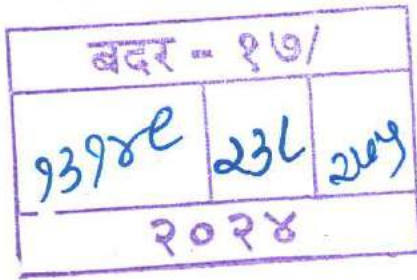 बदर - १७/
१३१४९ २३८
२०२४